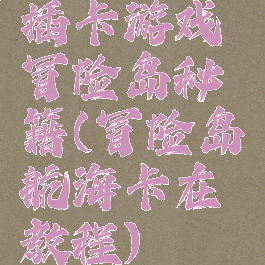 插卡游戏
冒险岛秘
籍(冒险岛
航海卡在
教程)